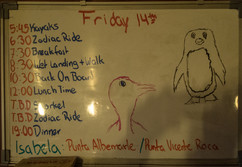 Friday 14th
5:45 Kayaks
6:30 Zodiac Ride
7:30 Breakfast
8:30 Wet Landing + Walk
10:30 Back On Board
12:00 Lunch Time
T.B.D Snorkel
T.B.D Zodiac Ride
19:00 Dinner
Isabela: Punta Albemarle / Punta Vicente Roca